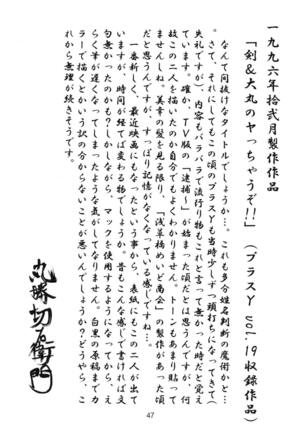 一九九六年拾弐月製作作品
「剣&大丸のヤっちゃうぞ!!」
(プラスY vol.19収録作品)
なんて間抜けなタイトルでしょうか…。これも多分姓名判断の魔術かと…
さて、それにしてもこの頃のプラスYも当時少しずつ頭打ちになってきて(
失礼ですが)、内容もバラバラで流行り物もこれと言って無かった時だと覚え
ています。確か、TV版の「逮捕~」が始まった頃だとは思うんですが、何
故この二人を描いたのか自分でもよくわかりません。トーンもあまり貼って
ませんしね。美幸の髪を見る限り、「浅草橋めいど商会」の製作があった頃
だと思うんですが、すっぽり記憶がなくなっている感じですね…。
一番新しく、最近映画にもなったという事から、表紙にもこの二人が出て
いますが、時間が経てば変わる物でしょうか。昔もこんな感じで書ければ文
句無かったのかも?しかしながら、マックを使用するようになってから、更
らく筆が遅くなってしまったような気がしてなりません。白黒の原稿までカ
ラーで描くとかいう訳の分からないことが悪いんでしょうか?どうやら、こ
れから無理が続きそうです。
丸勝切ェ衛門
47